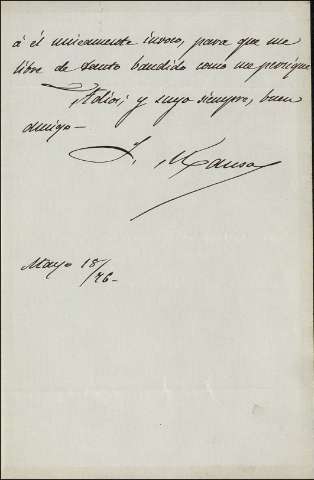 á él unicamente invoco, para que me
libre de tanto bandido como me persigue
Adios; y suyo siempre, buen
amigo—
J. Mansó
Mayo 18/
/76—